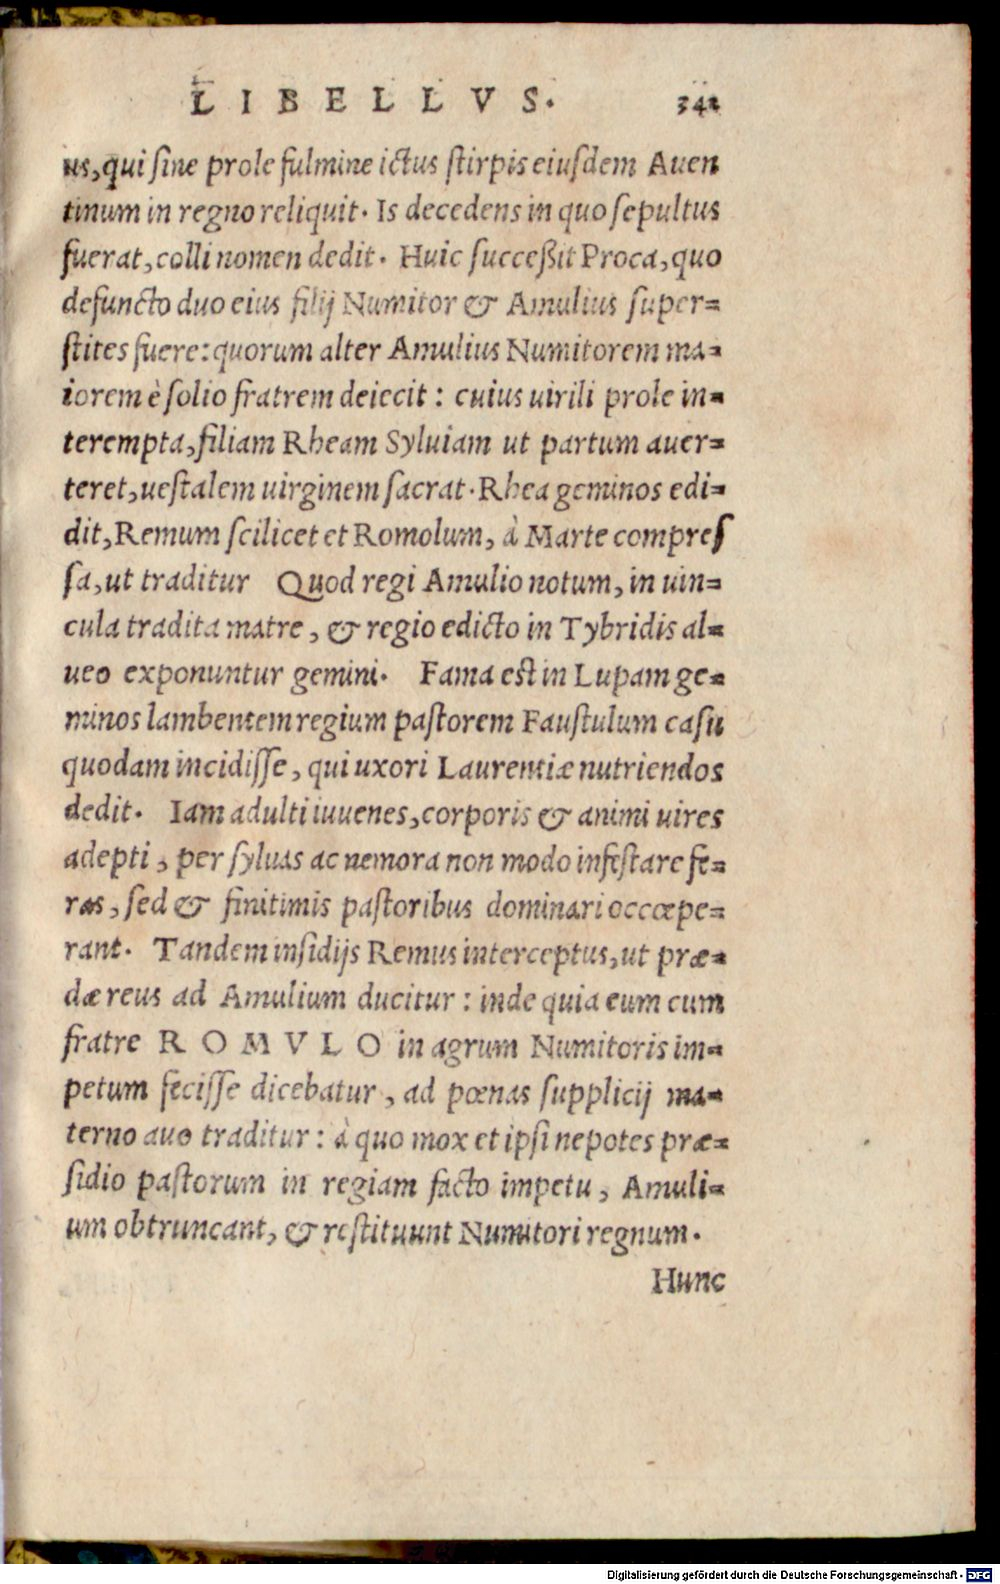 LIBELLVS. 342
us, qui sine prole fulmine ictus stirpis eiusdem Auen
tinum in regno reliquit. Is decedens in quo sepultus
fuerat, colli nomen dedit. Huic succeßit Proca, quo
defuncto duo eius filij Numitor & Amulius super=
stites fuere: quorum alter Amulius Numitorem ma=
iorem è solio fratrem deiecit: cuius uirili prole in=
terempta, filiam Rheam Syluiam ut partum auer=
teret, uestalem uirginem sacrat. Rhea geminos edi=
dit, Remum scilicet et Romolum, à Marte compres
sa, ut traditur Quod regi Amulio notum, in uin=
cula tradita matre, & regio edicto in Tybridis al=
ueo exponuntur gemini. Fama est in Lupam ge=
minos lambentem regium pastorem Faustulum casu
quodam incidisse, qui uxori Laurentiæ nutriendos
dedit. Iam adulti iuuenes, corporis & animi uires
adepti, per syluas ac nemora non modo infestare fe=
ras, sed & finitimis pastoribus dominari occœpe=
rant. Tandem insidijs Remus interceptus, ut præ=
dæ reus ad Amulium ducitur: inde quia eum cum
fratre ROMVLO in agrum Numitoris im=
petum fecisse dicebatur, ad pœnas supplicij ma=
terno auo traditur: à quo mox et ipsi nepotes præ=
sidio pastorum in regiam facto impetu, Amuli=
um obtruncant, & restituunt Numitori regnum.
Hunc
Digitalisierung gefördert durch die Deutsche Forschungsgemeinschaft - DFG